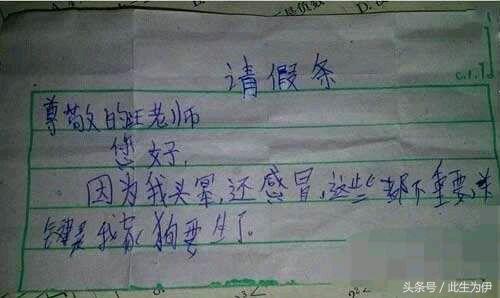 请假条
尊敬的旺老师
您好,
因为我头晕,还感冒,这些都不重要,关
键是我家狗要生了.
头条号 / 此生为伊